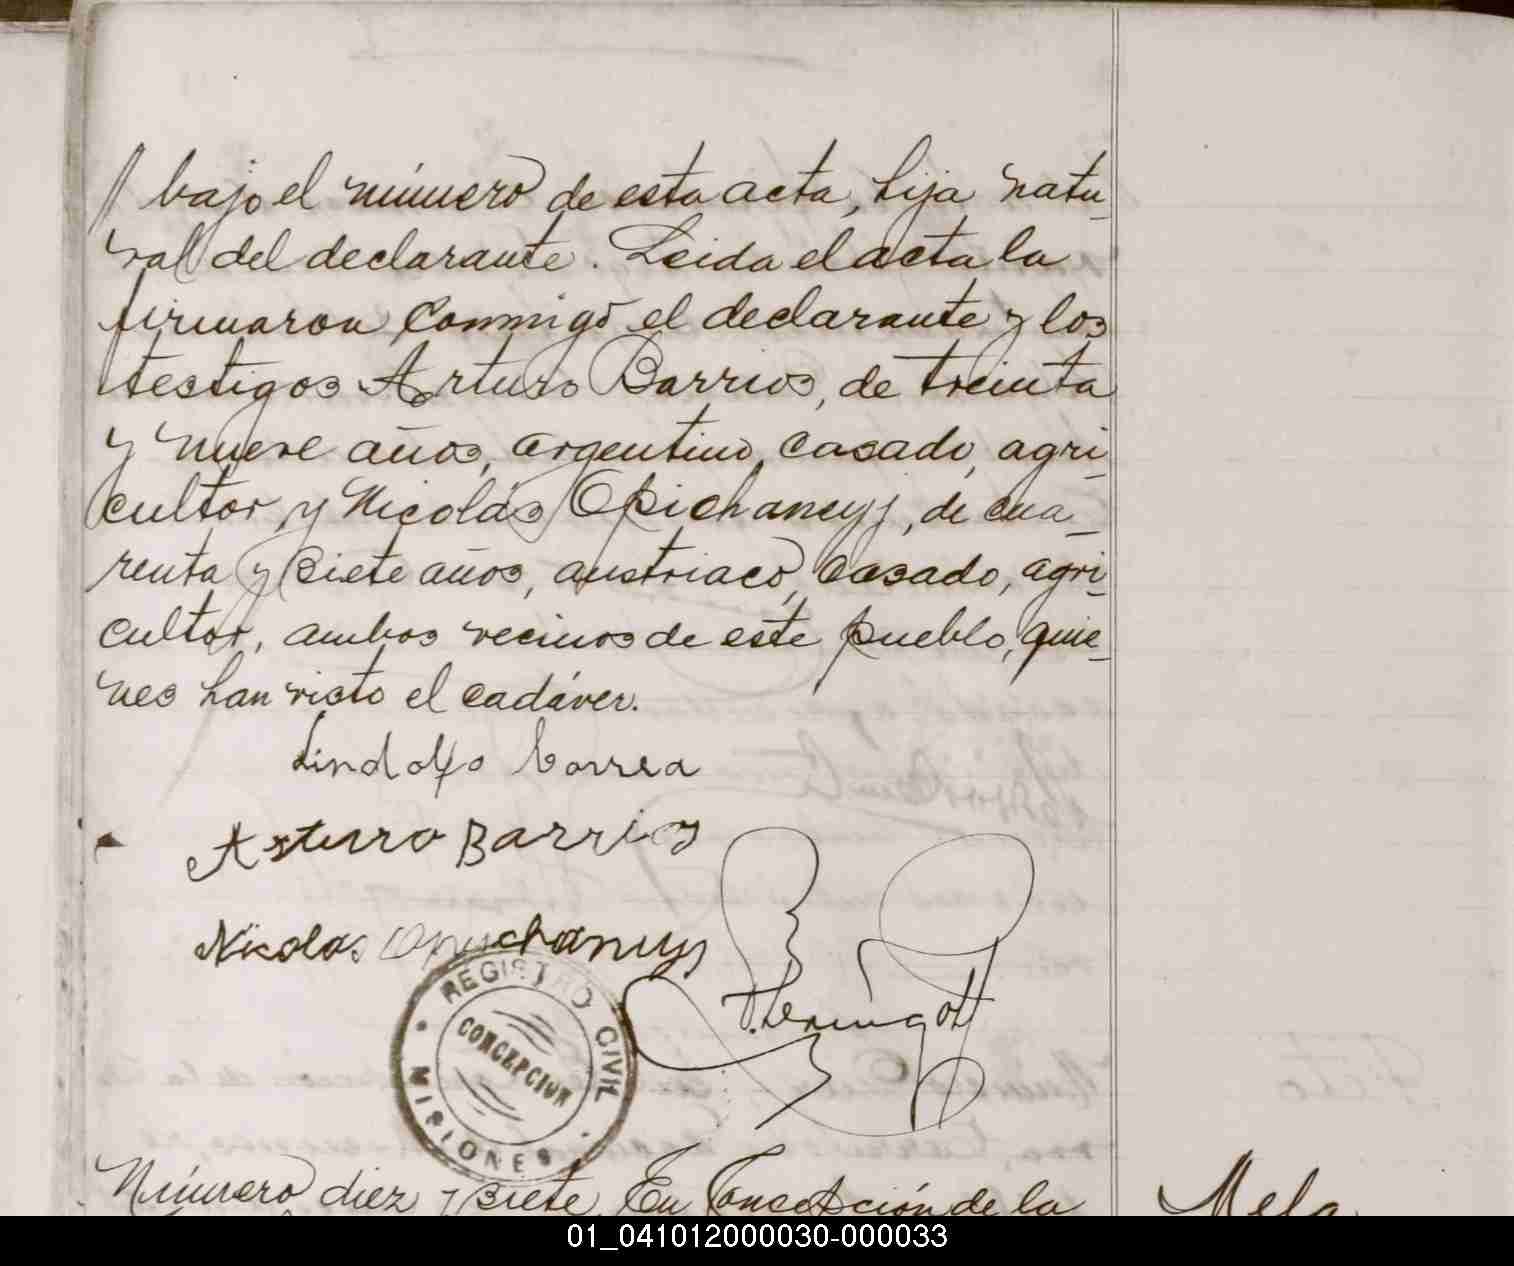 // bajo el número de esta acta, hija natu-
ral del declarante. Leida el acta la
firmaron conmigo el declarante y los
testigos Arturo Barrios, de treinta
y nueve años, argentino, casado, agri-
cultor, y Nicolás Opichaneyj, de cua-
renta y siete años, austriaco, casado, agri-
cultor, ambos vecinos de este pueblo, quie-
nes han visto el cadáver.
Lindolfo Correa
Arturro Barrios
Nicolas
REGISTRO CIVIL
CONCEPCION
MISIONES
Número diez y siete. En Concepción de la
01_041012000030-000033